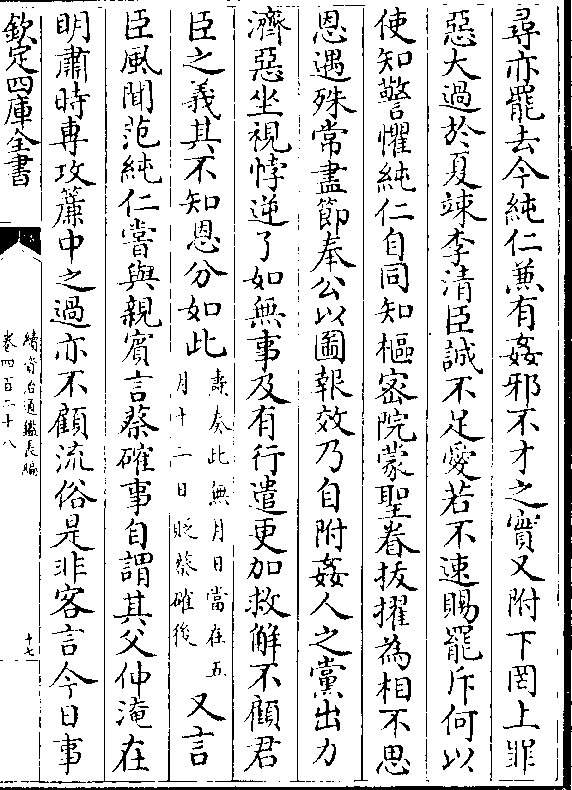 尋亦罷去今純仁兼有姦邪不才之實又附下罔上罪
惡大過於夏竦李清臣誠不足愛若不速賜罷斥何以
使知警懼純仁自同知樞密院蒙聖眷拔擢為相不思
恩遇殊常盡節奉公以圖報效乃自附姦人之黨出力
濟惡坐視悖逆了如無事及有行遣更加救解不顧君
臣之義其不知恩分如此
燾奏此無月日當在五
月十一日貶蔡確後
又言
臣風聞范純仁嘗與親賓言蔡確事自謂其父仲淹在
明肅時專攻簾中之過亦不顧流俗是非客言今日事
欽定四庫全書
續資治通鑑長編
卷四百二十八
十七